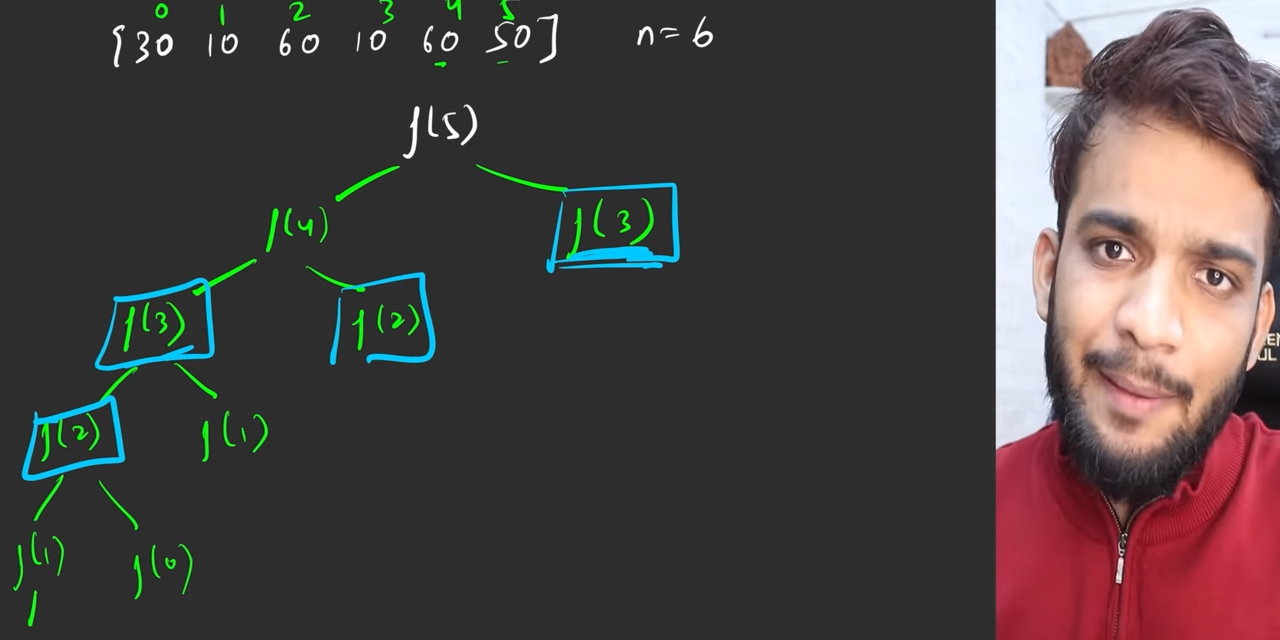 0 1 2 3 4 5
[30 10 60 10 60 50] n=6
f(5)
f(4) f(3)
f(3) f(2)
f(2) f(1)
f(1) f(0)